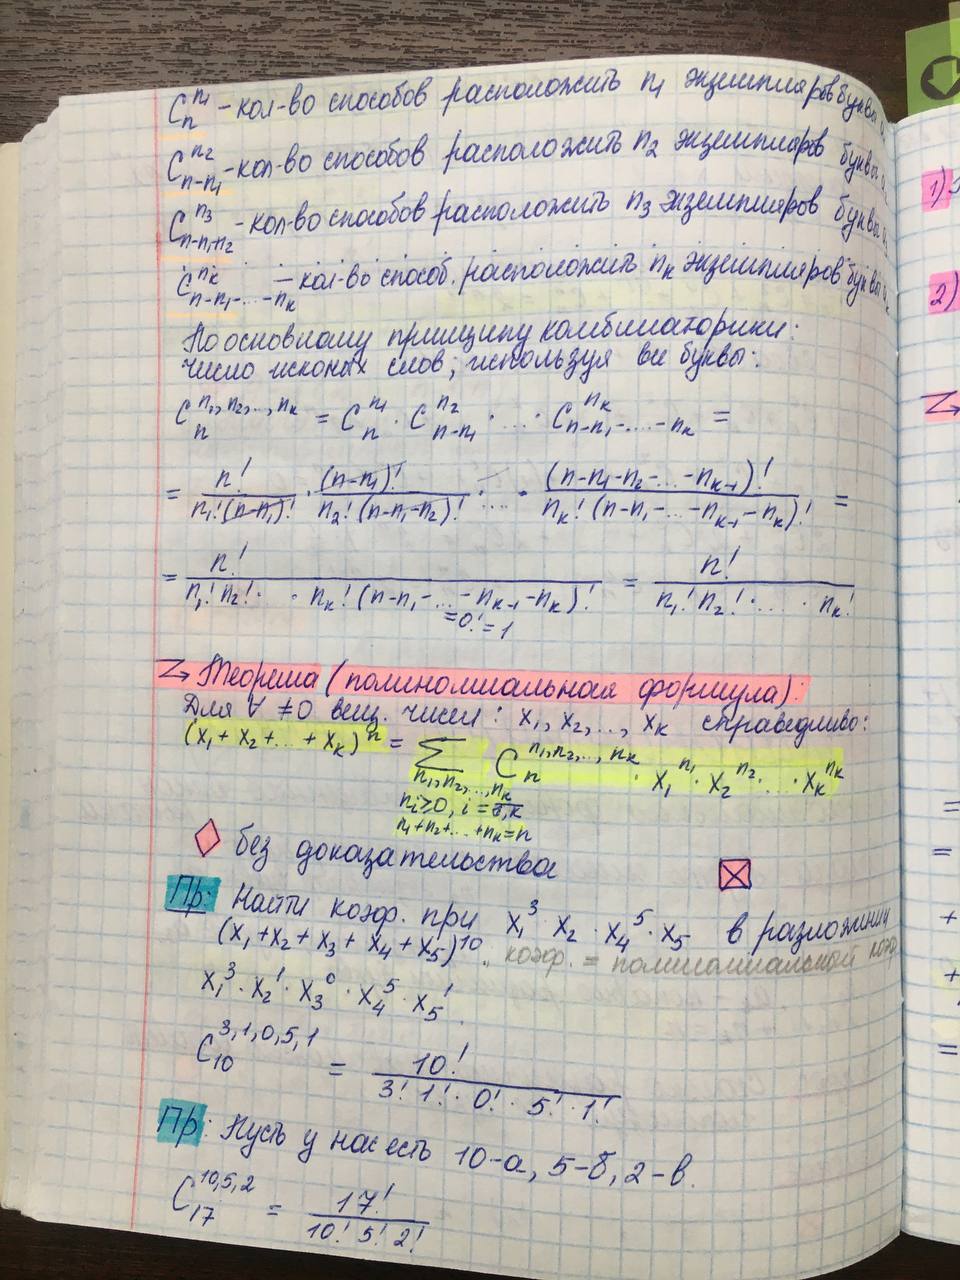 C_n^{n_1} – кол-во способов расположить n_1 экземпляров буквы a_1
C_{n-n_1}^{n_2} – кол-во способов расположить n_2 экземпляров буквы a_2
C_{n-n_1-n_2}^{n_3} – кол-во способов расположить n_3 экземпляров буквы a_3
C_{n-n_1-...-n_k}^{n_k} – кол-во способ. расположить n_k экземпляров буквы a_k
По основному принципу комбинаторики:
число искомых слов, используя все буквы:
C_n^{n_1, n_2, ..., n_k} = C_n^{n_1} · C_{n-n_1}^{n_2} · ... · C_{n-n_1-...-n_k}^{n_k} =
= n! / (n_1! (n-n_1)!) · (n-n_1)! / (n_2! (n-n_1-n_2)!) · ... · (n-n_1-n_2-...-n_{k-1})! / (n_k! (n-n_1-...-n_{k-1}-n_k)!) =
= n! / (n_1! n_2! · · n_k! (n-n_1-...-n_{k-1}-n_k)!) = n! / (n_1! n_2! · ... · n_k!)
=0! = 1
Теорема (полиномиальная формула):
Для ∀ ≠0 вещ. чисел : x_1, x_2, ..., x_k справедливо:
(x_1 + x_2 + ... + x_k)^n = ∑ C_n^{n_1, n_2, ..., n_k} · x_1^{n_1} · x_2^{n_2} · ... · x_k^{n_k}
n_1, n_2, ..., n_k
n_i ≥ 0, i = 1,k
n_1 + n_2 + ... + n_k = n
без доказательства
Пр: Найти коэф. при x_1^3 · x_2 · x_4^5 · x_5 в разложении
(x_1 + x_2 + x_3 + x_4 + x_5)^{10}. коэф. = полиномиальной коэф
x_1^3 · x_2^1 · x_3^0 · x_4^5 · x_5^1.
C_{10}^{3,1,0,5,1} = 10! / (3! 1! · 0! · 5! · 1!)
Пр: Пусть у нас есть 10-а, 5-б, 2-в.
C_{17}^{10,5,2} = 17! / (10! 5! 2!)
1)
2)
=
=
+
+
=